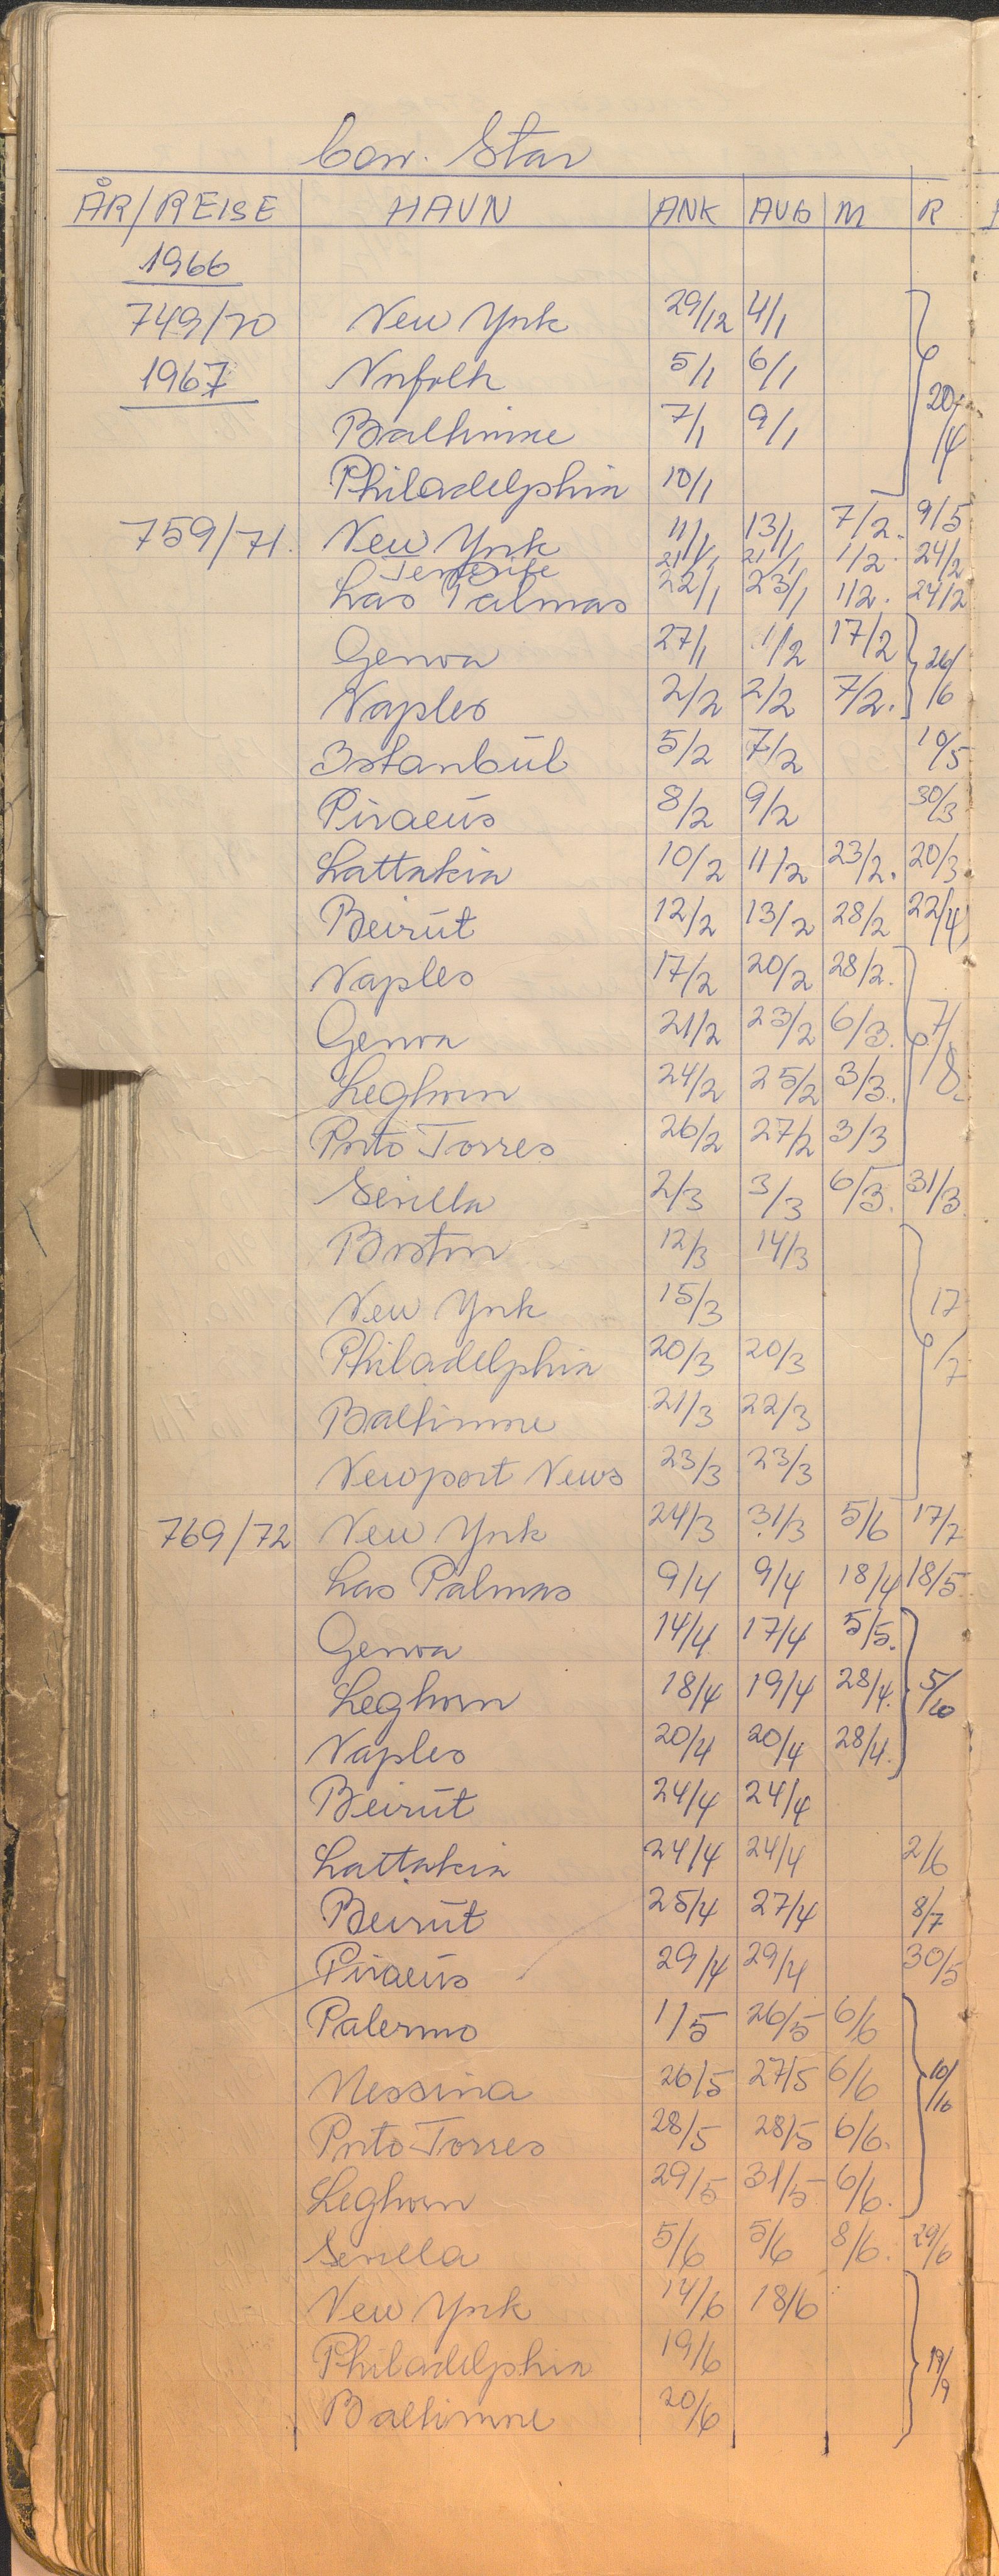 Con. Star
ÅR/REISE HAVN ANK AVG M R
1966
749/70 New York 29/12 4/1
1967 Norfolk 5/1 6/1 20/4
Baltimore 7/1 9/1
Philadelphia 10/1
759/71. New York 11/1 13/1 7/2. 9/5
Tenerife 21/1 21/1 1/2. 24/2
Las Palmas 22/1 23/1 1/2. 24/2
Genoa 27/1 1/2 17/2 26/6
Naples 2/2 2/2 7/2.
Istanbul 5/2 7/2 10/5
Piraeus 8/2 9/2 30/3
Lattakia 10/2 11/2 23/2. 20/3
Beirut 12/2 13/2 28/2 22/4
Naples 17/2 20/2 28/2.
Genoa 21/2 23/2 6/3. 7/8
Leghorn 24/2 25/2 3/3.
Porto Torres 26/2 27/2 3/3
Sevilla 2/3 3/3 6/3. 31/3
Boston 12/3 14/3
New York 15/3 17/7
Philadelphia 20/3 20/3
Baltimore 21/3 22/3
Newport News 23/3 23/3
769/72 New York 24/3 31/3 5/6 17/7
Las Palmas 9/4 9/4 18/4 18/5
Genoa 14/4 17/4 5/5.
Leghorn 18/4 19/4 28/4. 5/10
Naples 20/4 20/4 28/4.
Beirut 24/4 24/4
Lattakia 24/4 24/4 2/6
Beirut 25/4 27/4 8/7
Piraeus 29/4 29/4 30/5
Palermo 1/5 26/5 6/6
Messina 26/5 27/5 6/6 10/10
Porto Torres 28/5 28/5 6/6.
Leghorn 29/5 31/5 6/6.
Sevilla 5/6 5/6 8/6. 29/6
New York 14/6 18/6
Philadelphia 19/6 19/9
Baltimore 20/6